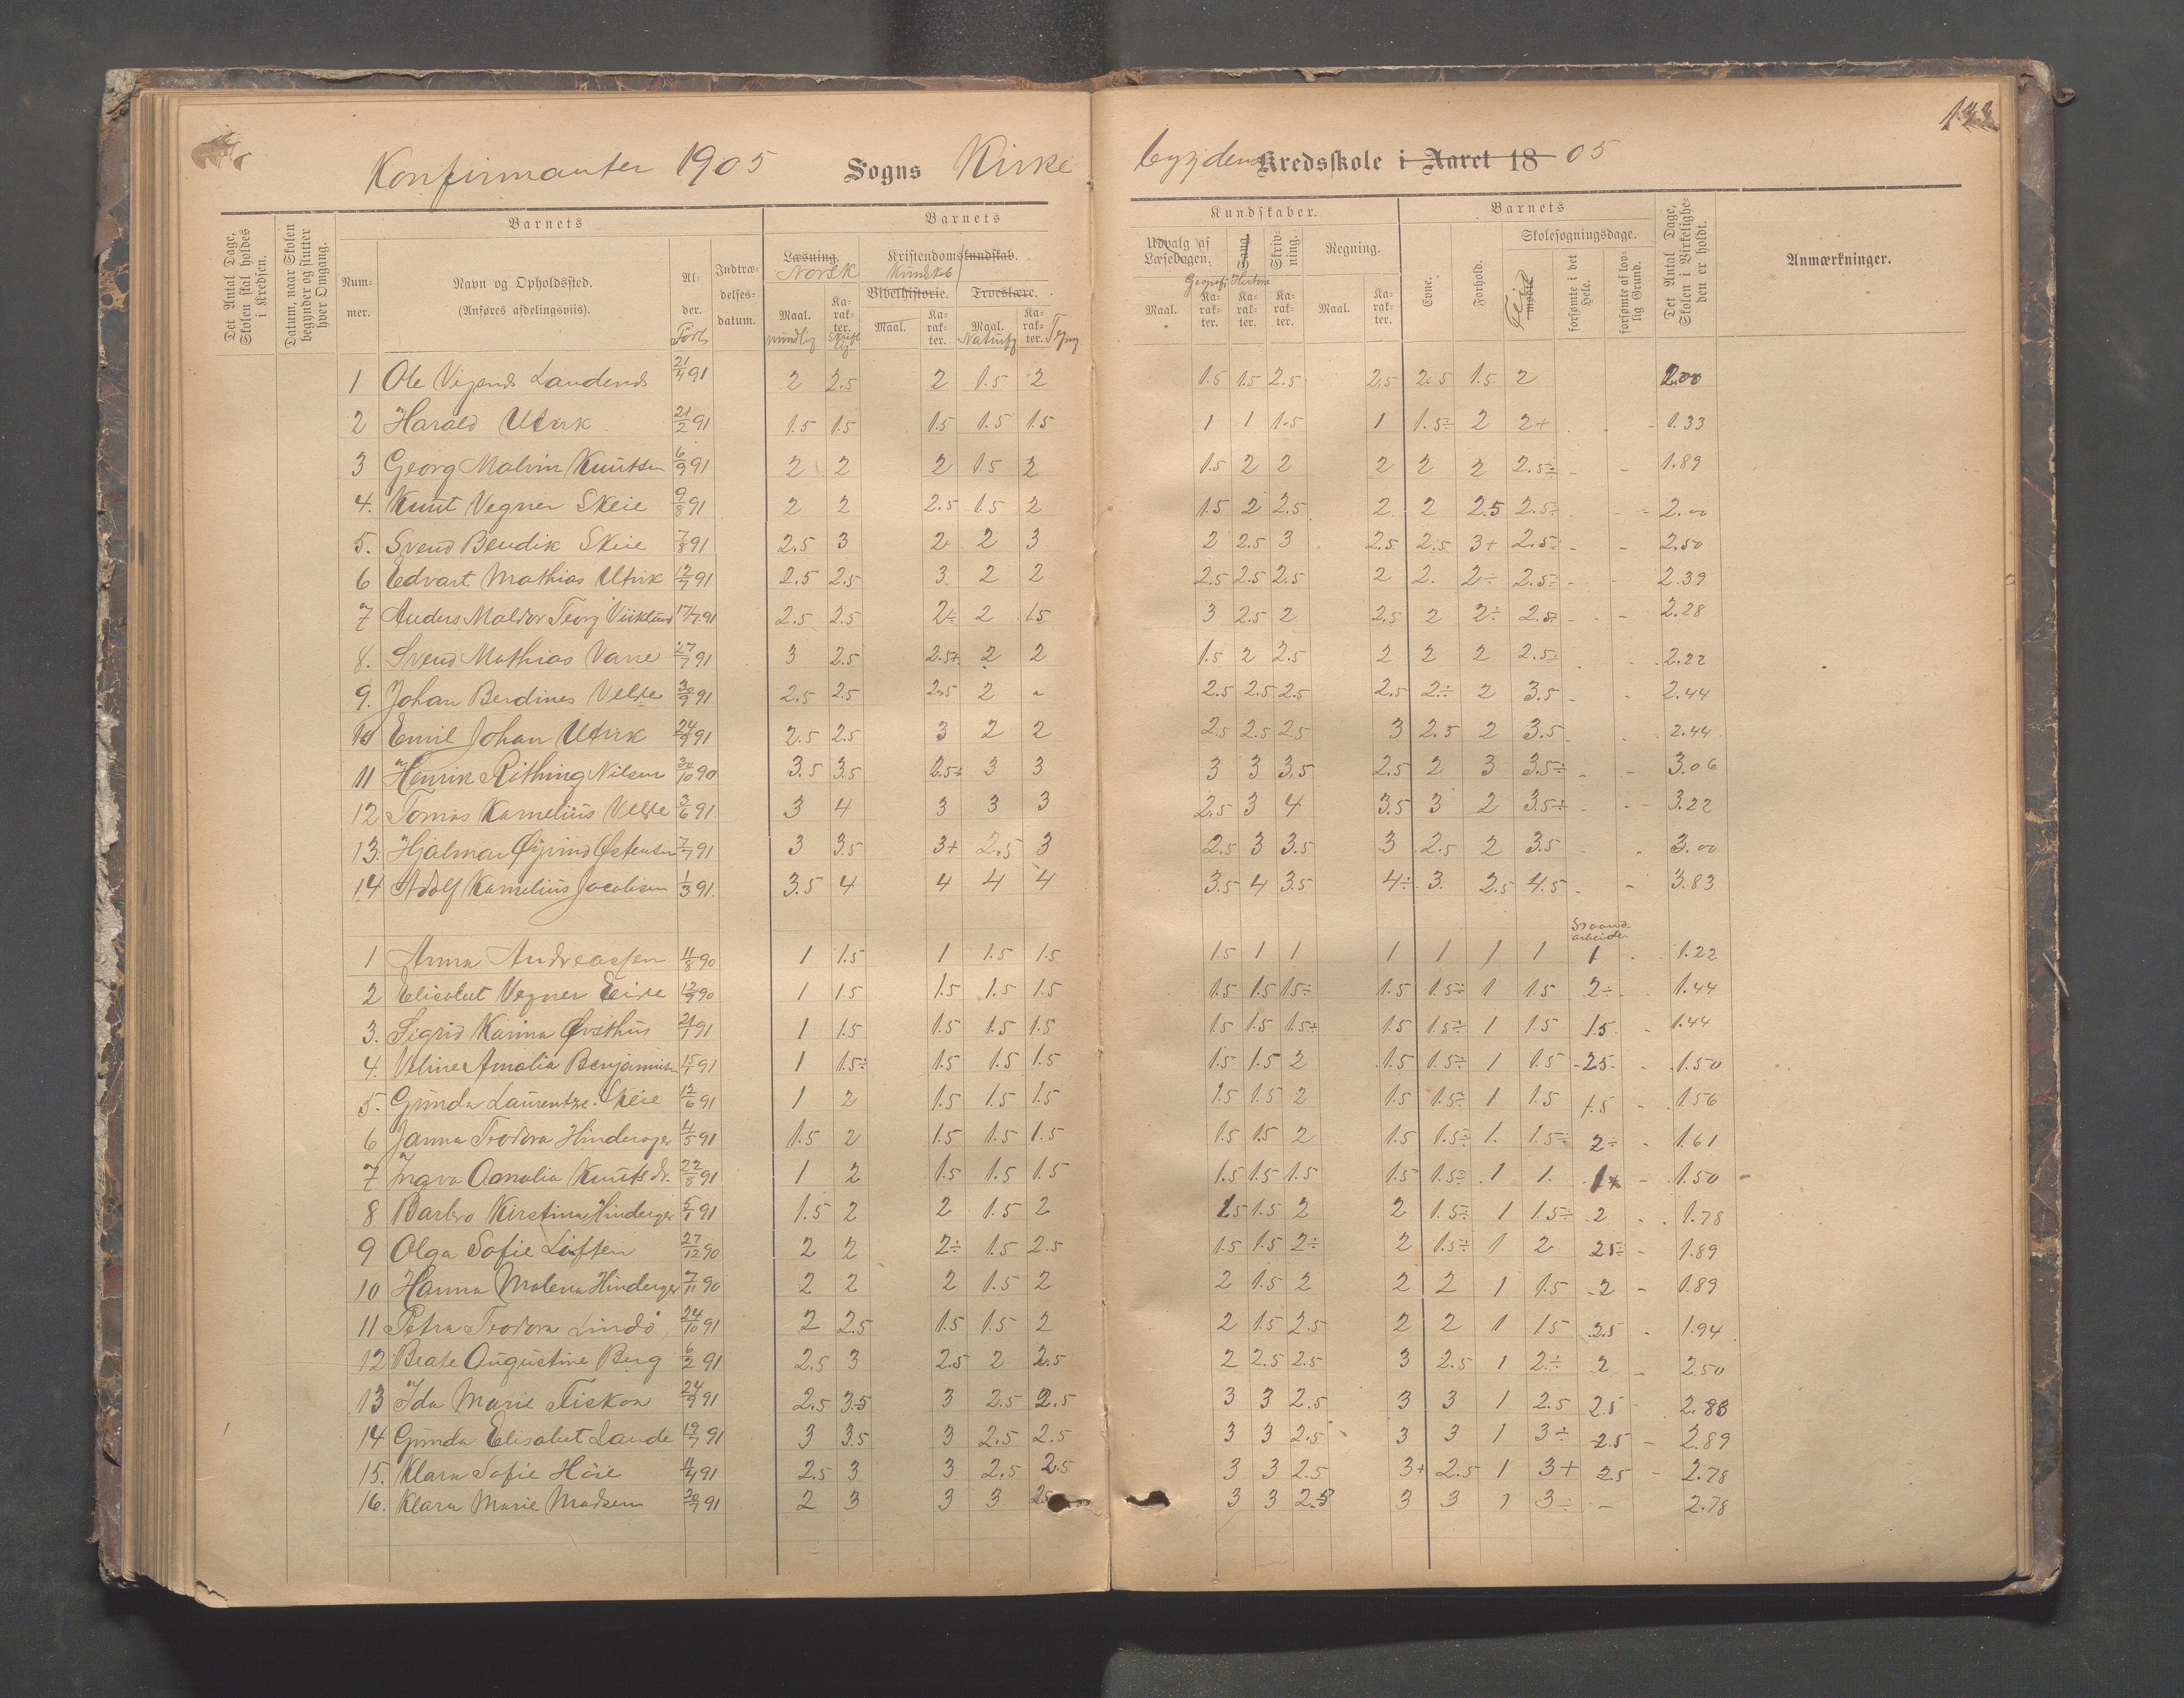 122
Konfirmanter 1905 Sogns Kirkebygdens Kredsskole i Aaret 18 05
Det Antal Dage, Skolen skal holdes i Kredsen.
Datum, naar Skolen begynder og slutter hver Omgang.
Barnets
Nummer.
Navn og Opholdssted.
(Anføres afdelingsviis).
Alder.
Født
Indtrædelsesdatum.
Barnets
Læsning.
Norsk
Kristendomskundskab.
Kundskab
Bibelhistorie.
Troeslære.
Maal. mundlig
Karakter. Skriftlig
Maal.
Karakter.
Maal. Naturfg
Karakter. Tegng
Kundskaber.
Udvalg af Læsebogen.
Sang.
Skrivning.
Regning.
Geografi Historie
Maal.
Karakter.
Karakter.
Karakter.
Maal.
Karakter.
Barnets
Evne.
Forhold.
Skolesøgningsdage.
mødte
Flid
forsømte i det Hele.
forsømte af lovlig Grund.
Det Antal Dage, Skolen i Virkeligheden er holdt.
Anmærkninger.
1 Ole Laudends 21/4 91 2 2.5 2 1.5 2 1.5 1.5 2.5 2.5 2.5 1.5 2 2.00
2 Harald Utvik 21/2 91 1.5 1.5 1.5 1.5 1.5 1 1 1.5 1 1.5÷ 2 2+ 1.33
3 Georg Malvin Knutsen 6/9 91 2 2 2 1.5 2 1.5 2 2 2 2 2 2.5÷ - - 1.89
4. Knut Vegner Skeie 9/8 91 2 2 2.5 1.5 2 1.5 2 2.5 2 2 2.5 2.5÷ - - 2.00
5. Svend Bendik Skeie 7/8 91 2.5 3 2 2 3 2 2.5 3 2.5 2.5 3+ 2.5÷ - - 2.50
6 Edvart Mathias Utvik 12/7 91 2.5 2.5 3 2 2 2.5 2.5 2.5 2 2. 2÷ 2.5÷ - - 2.39
7 Anders Maldor Georg Viiklund 17/7 91 2.5 2.5 2÷ 2 1.5 3 2.5 2 2.5 2 2÷ 2.5+ - - 2.28
8. Svend Mathias Varre 27/7 91 3 2.5 2.5+ 2 2 1.5 2 2.5 2 2 2 2.5÷ - - 2.22
9. Johan Berdines Velde 30/9 91 2.5 2.5 2.5 2 " 2.5 2.5 2.5 2.5 2÷ 2 3.5 - - 2.44
10 Emil Johan Utvik 24/9 91 2.5 2.5 3 2 2 2.5 2.5 2.5 3 2.5 2 3.5 - - 2.44
11 Henrik Nilsen 30/10 90 3.5 3.5 2.5÷ 3 3 3 3 3.5 2.5 2 3 3.5÷ - - 3.06
12 Tomas Karnelius Velde 3/6 91 3 4 3 3 3 2.5 3 4 3.5 3 2 3.5+ - - 3.22
13. Hjalmar Øivind Østensen 7/7 91 3 3.5 3+ 2.5 3 2.5 3 3.5 3 2.5 2 3.5 - - 3.00
14 Adolf Karnelius Jacobsen 1/3 91 3.5 4 4 4 4 3.5 4 3.5 4÷ 3. 2.5 4.5 - - 3.83
Haandarbeide
1 Anna Andreassen 11/8 90 1 1.5 1 1.5 1.5 1.5 1 1 1 1 1 1 1 - 1.22
2 Elisabet Vegner Eide 12/9 90 1 1.5 1.5 1.5 1.5 1.5 1.5 1.5÷ 1.5 1.5÷ 1 1.5 2÷ - 1.44
3. Sigrid Karina Østhus 21/1 91 1 1.5 1.5 1.5 1.5 1.5 1.5 1.5+ 1.5 1.5÷ 1 1.5 1.5 - 1.44
4. Veline Amalia Benjaminsen 15/4 91 1 1.5÷ 1.5 1.5 1.5 1.5 1.5 2 1.5 1.5÷ 1 1.5 2.5 - 1.50
5. Gunda Laurentze Skeie 12/6 91 1 2 1.5 1.5 1.5 1.5 1.5 2 1.5 1.5÷ 1 1.5 1.5 - 1.56
6 Janna Teodora Hinderager 4/5 91 1.5 2 1.5 1.5 1.5 1.5 1.5 2 1.5 1.5÷ 1. 1.5÷ 2÷ - 1.61
7 Ingva Amalia Knutsdr. 22/8 91 1 2 1.5 1.5 1.5 1.5 1.5 1.5 1.5 1.5÷ 1 1. 1+ - 1.50
8 Barbro Kirstina Hinderger 5/1 91 1.5 2 2 1.5 2 1.5 1.5 2 2 1.5÷ 1 1.5÷ 2 - 1.78
9 Olga Sofie Liften 27/12 90 2 2 2÷ 1.5 2.5 1.5 1.5 2÷ 2 1.5÷ 1 2 2.5÷ - 1.89
10 Hanna Malena Hinderger 7/11 90 2 2 2 1.5 2 2 1.5 2 2 2 1 1.5 2 - 1.89
11 Petra Teodora Lindø 24/10 91 2 2.5 1.5 1.5 2 2 1.5 2.5 2 2 1 1.5 2.5 - 1.94
12 Beate Augustine Berg 6/2 91 2.5 3 2.5 2 2.5 2 2.5 2.5 3 2.5 1 2÷ 2 - 2.50
13 Ida Marie Fiskaa 24/9 91 2.5 3.5 3 2.5 2.5 3 3 2.5 3 3 1 2.5 2.5 - 2.83
14 Gunda Elisabet Lande 19/7 91 3 3.5 3 2.5 2.5 3 3 2.5 3 3 1 3÷ 2.5 - 2.89
15. Klara Sofie Høie 11/4 91 2.5 3 3 2.5 2.5 3 3 2.5 3+ 2.5 1 3+ 2.5 - 2.78
16. Klara Marie Madsen 20/7 91 2 3 3 3 2.5 3 3 2.5 3 3 1 3÷ - 2.78